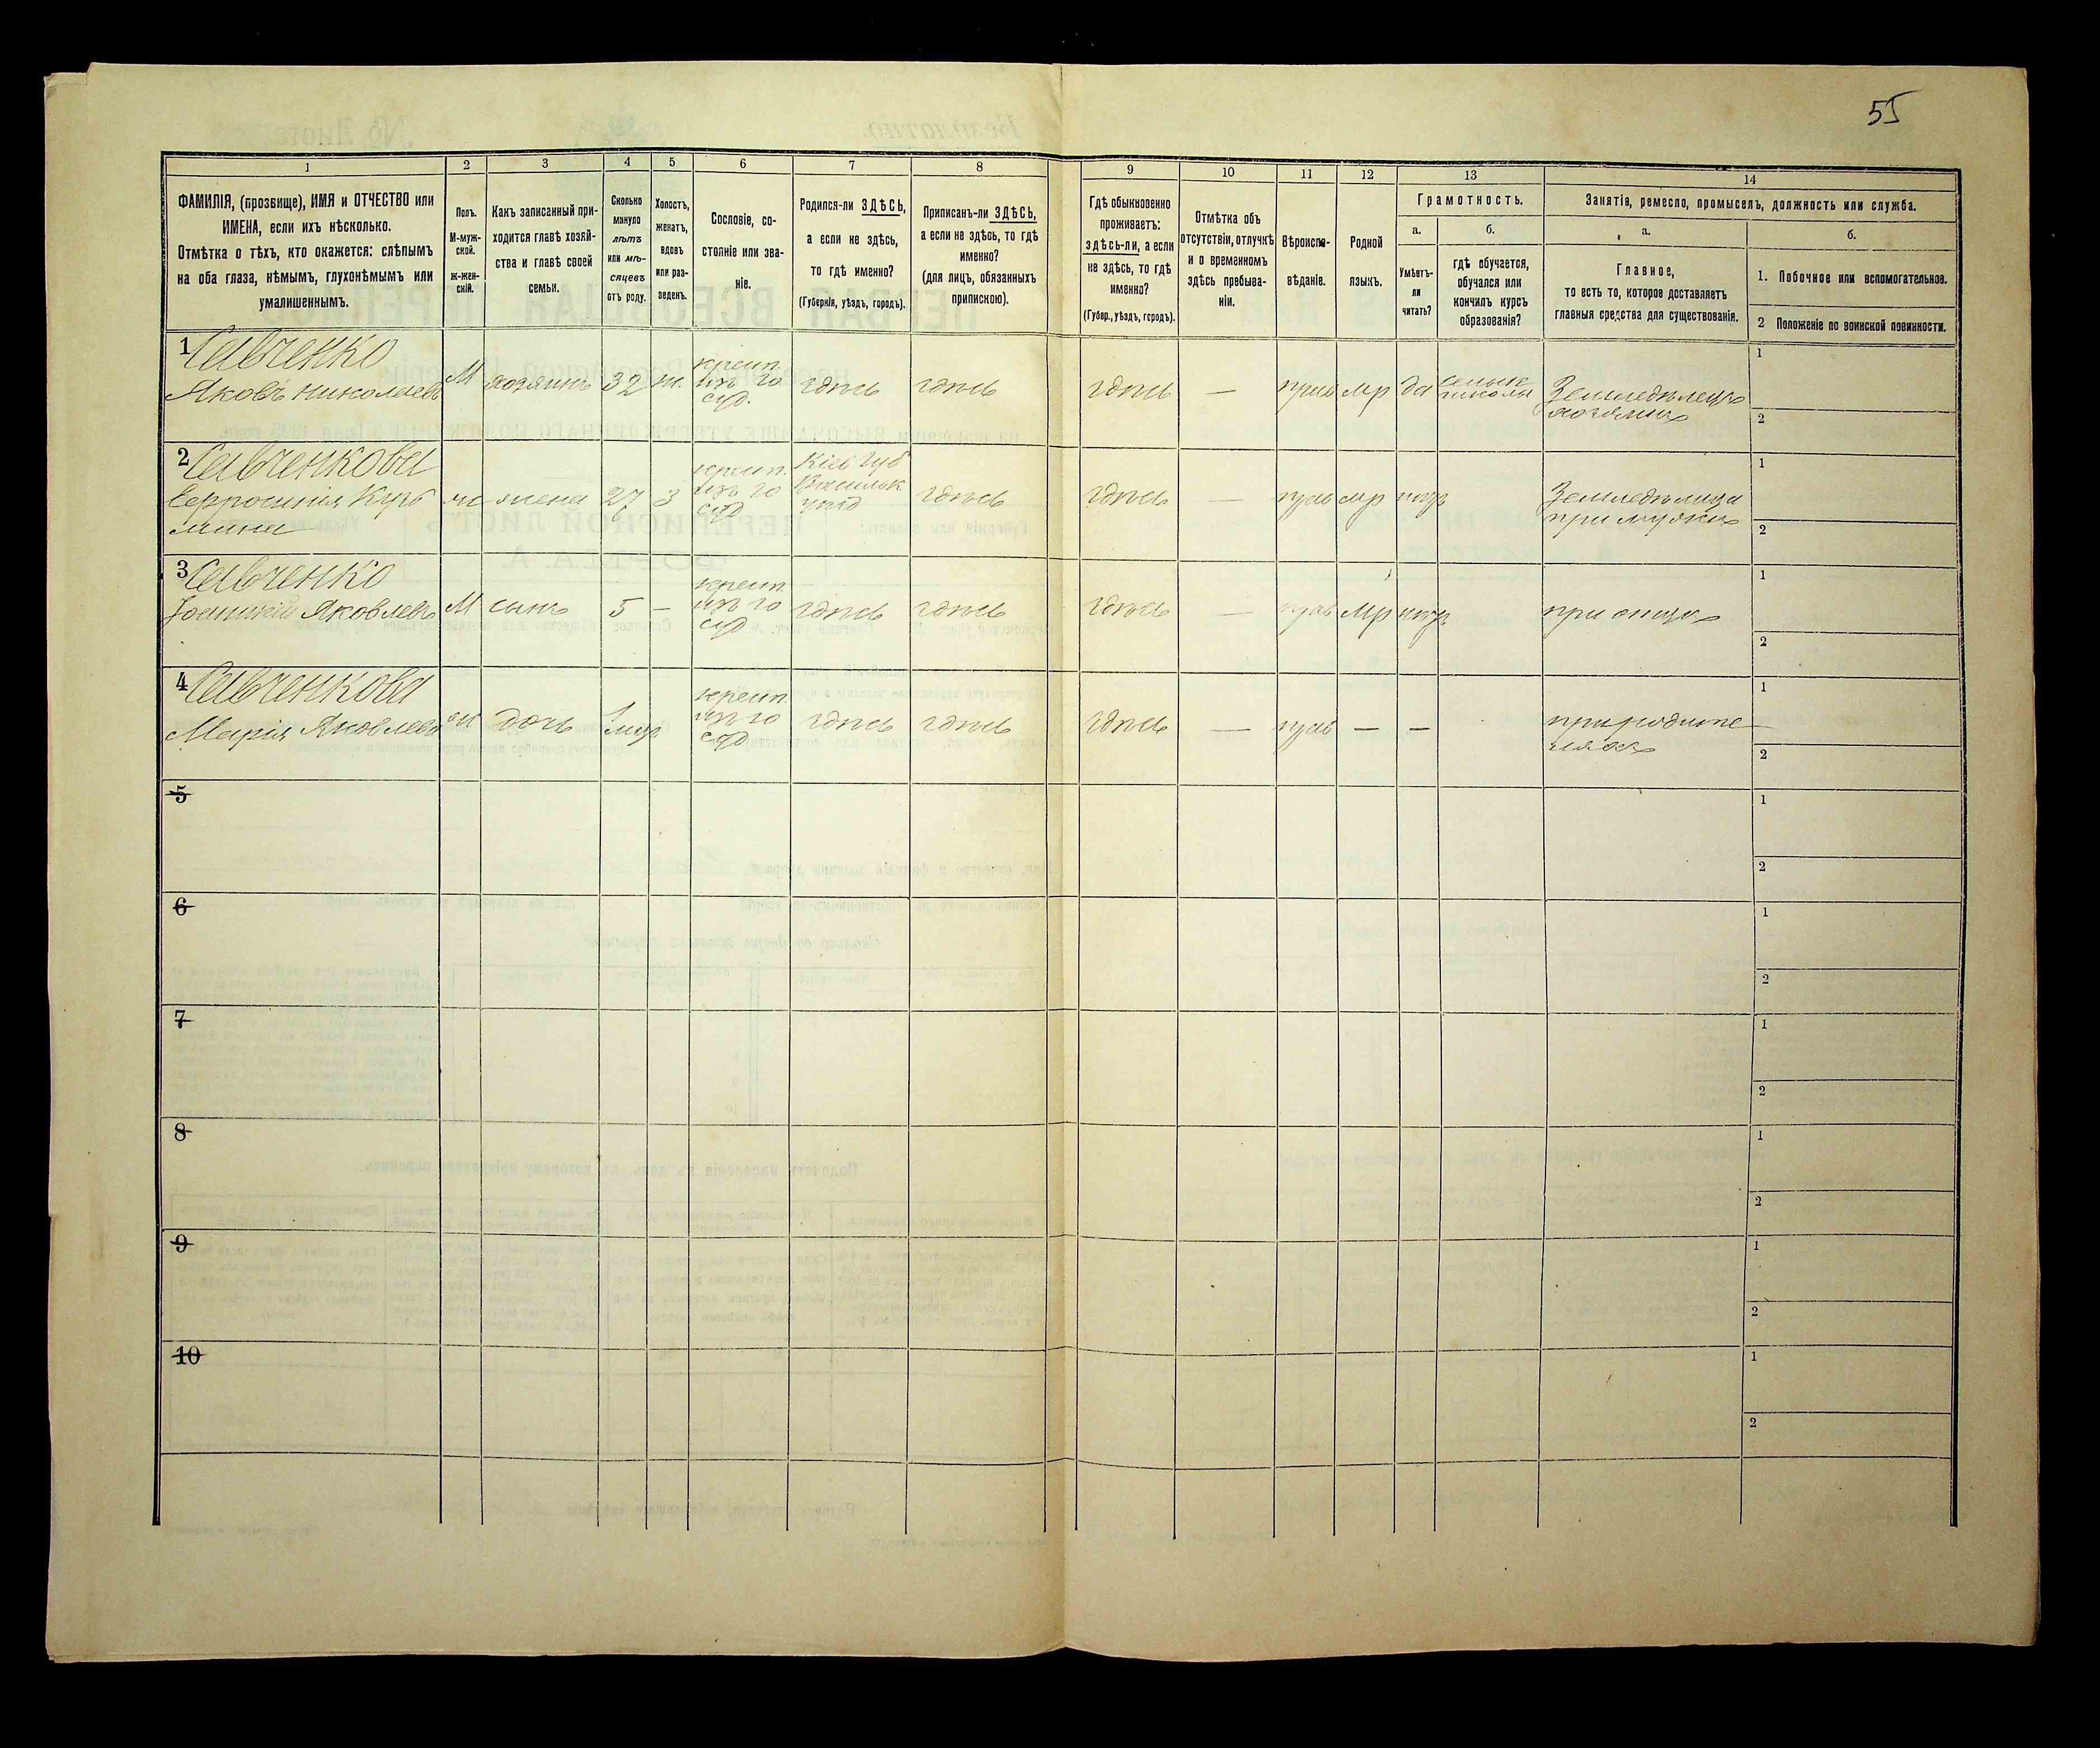 55
1 2 3 4 5 6 7 8 9 10 11 12 13 14
ФАМИЛІЯ, (прозвище), ИМЯ и ОТЧЕСТВО или
ИМЕНА, если ихъ нѣсколько.
Отмѣтка о тѣхъ, кто окажется: слѣпымъ
на оба глаза, нѣмымъ, глухонѣмымъ или
умалишеннымъ.
Полъ.
М-муж-
ской.
Ж-жен-
скій.
Какъ записанный при-
ходится главѣ хозяй-
ства и главѣ своей
семьи.
Сколько
минуло
лѣтъ
или мѣ-
сяцевъ
отъ роду.
Холостъ,
женатъ,
вдовъ
или раз-
веденъ.
Сословіе, со-
стояніе или зва-
ніе.
Родился-ли ЗДѢСЬ,
а если не здѣсь,
то гдѣ именно?
(Губернія, уѣздъ, городъ).
Приписанъ-ли ЗДѢСЬ,
а если не здѣсь, то гдѣ
именно?
(для лицъ, обязанныхъ
припискою).
Гдѣ обыкновенно
проживаетъ:
здѣсь-ли, а если
не здѣсь, то гдѣ
именно?
(Губер., уѣздъ, городъ).
Отмѣтка объ
отсутствіи, отлучкѣ
и о временномъ
здѣсь пребыва-
ніи.
Вѣроиспо-
вѣданіе.
Родной
языкъ.
Грамотность.
а.
Умѣетъ-
ли
читать?
б.
гдѣ обучается,
обучался или
кончилъ курсъ
образованія?
Занятія, ремесло, промыселъ, должность или служба.
а.
Главное,
то есть то, которое доставляетъ
главныя средства для существованія.
б.
1. Побочное или вспомогательное.
2 Положеніе по воинской повинности.
1 Савченко
Яковъ Николаевъ
М
хозяинъ
32
ж.
крест.
изъ го
суд.
здѣсь
здѣсь
здѣсь
—
прав
мр
да
сельск
школы
Земледѣлецъ
хозяинъ
1
2
2 Савченкова
Евросинія Кузь
мина
ж
жена
27
з
крест.
изъ го
суд
Кіев губ
Васильк
уѣзд
здѣсь
здѣсь
—
прав
мр
нѣтъ
Земледѣлица
при мужѣ
1
2
3 Савченко
Яковлевъ
М
сынъ
5
—
крест.
изъ го
суд
здѣсь
здѣсь
здѣсь
—
прав
мр
нѣтъ
при отцѣ
1
2
4 Савченкова
Марія Яковлева
ж
дочь
1
мѣс
крест.
изъ го
суд
здѣсь
здѣсь
здѣсь
—
прав
—
—
при родите
ляхъ
1
2
5
1
2
6
1
2
7
1
2
8
1
2
9
1
2
10
1
2